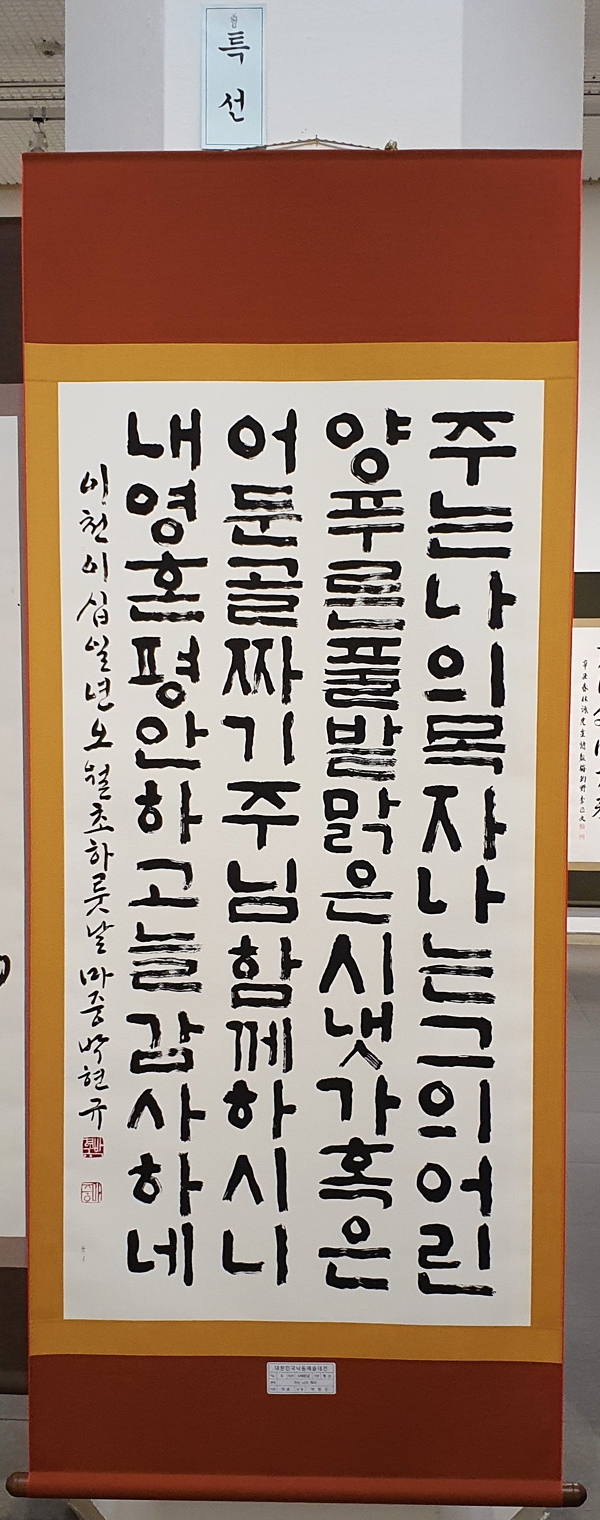 특선
주는나의목자나는그의어린
양푸른풀발맑은시냇가혹은
어둔골짜기주님함께하시니
내영혼평안하고늘감사하네
이천이십일년오월초하룻날 마중 박현규
대한민국낙동예술대전